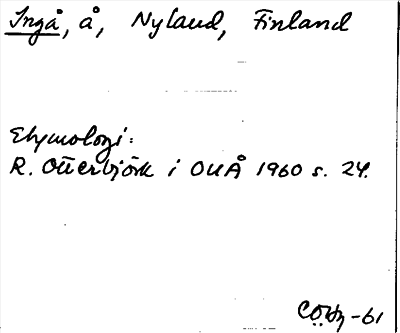 Ingå, å, Nyland, Finland
Etymologi:
R. Otterbjörk i OUÅ 1960 s. 24.
-61